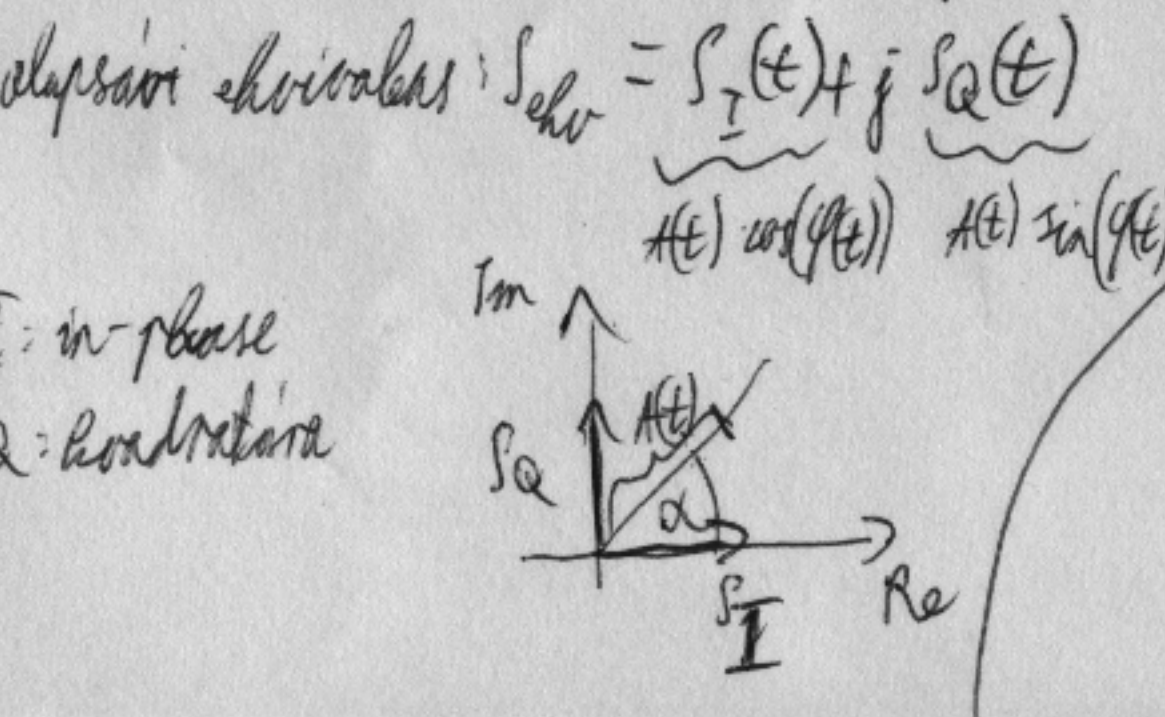 alapsávi ekvivalens: S_ekv = S_I(t) + j S_Q(t)
A(t) cos(φ(t)) A(t) sin(φ(t)
I: in-phase
Q: kvadratúra
Im
A(t)
S_Q
α
S_I
Re